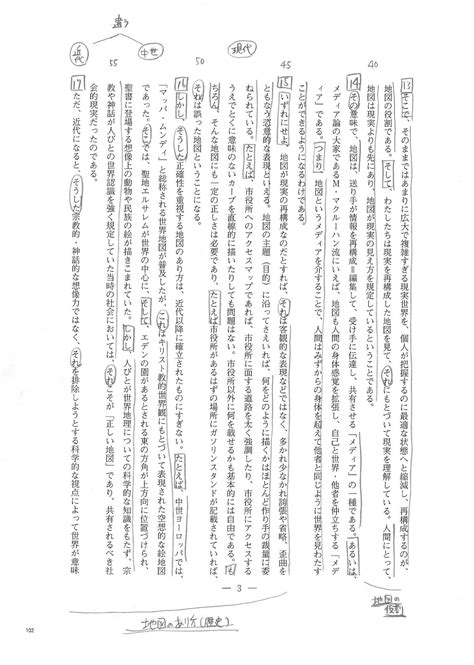 40
45
50
55
13 そこで、そのままではあまりに広大で複雑すぎる現実世界を、個人が把握するのに最適な状態へと縮減し、再構成するのが、
地図の役割である。そして、わたしたちは現実を再構成した地図を見て、それにもとづいて現実を理解している。人間にとって、
地図は現実よりも先にあり、地図が現実の見え方を規定しているということである。
14 その意味で、地図は、送り手が情報を再構成=編集して、受け手に伝達し、共有させる「メディア」の一種である。あるいは、
メディア論の大家であるM・マクルーハン流にいえば、地図も人間の身体感覚を拡張し、自己と世界・他者を仲立ちする「メデ
ィア」である。つまり、地図というメディアを介することで、人間はみずからの身体を超えて他者と同じように世界を見わたす
ことができるようになるわけである。
15 いずれにせよ、地図が現実の再構成なのだとすれば、それは客観的な表現などではなく、多かれ少なかれ誇張や省略、歪曲を
ともなう恣意的な表現といえる。地図の主題(目的)に沿ってさえいれば、何をどのように描くかはほとんど作り手の裁量に委
ねられている。たとえば、市役所へのアクセスマップであれば、市役所に面する道路を太く強調したり、市役所にアクセスする
うえでとくに意味のないカーブを直線的に描いたりしても問題はない。市役所以外に何を載せるかも基本的には自由である。も
ちろん、そんな地図にも一定の正しさは必要であり、たとえば市役所があるはずの場所にガソリンスタンドが記載されていれば、
それは誤った地図ということになる。
16 しかし、そうした正確性を重視する地図のあり方は、近代以降に確立されたものにすぎない。たとえば、中世ヨーロッパでは、
「マッパ・ムンディ」と総称される世界地図が普及したが、これはキリスト教的世界観にもとづいて表現された空想的な絵地図
であった。そこでは、聖地エルサレムが世界の中心に、そして、エデンの園があるとされる東の方角が上方向に位置づけられ、
聖書に登場する想像上の動物や民族の絵が描きこまれていた。しかし、人びとが世界地理についての科学的な知識をもたず、宗
教や神話が人びとの世界認識を強く規定していた当時の社会においては、それこそが「正しい地図」であり、共有されるべき社
会的現実だったのである。
17 ただ、近代になると、そうした宗教的・神話的な想像力ではなく、それを排除しようとする科学的な視点によって世界が意味
違う
近代
中世
現代
地図の役割
地図のあり方(歴史)
— 3 —
102